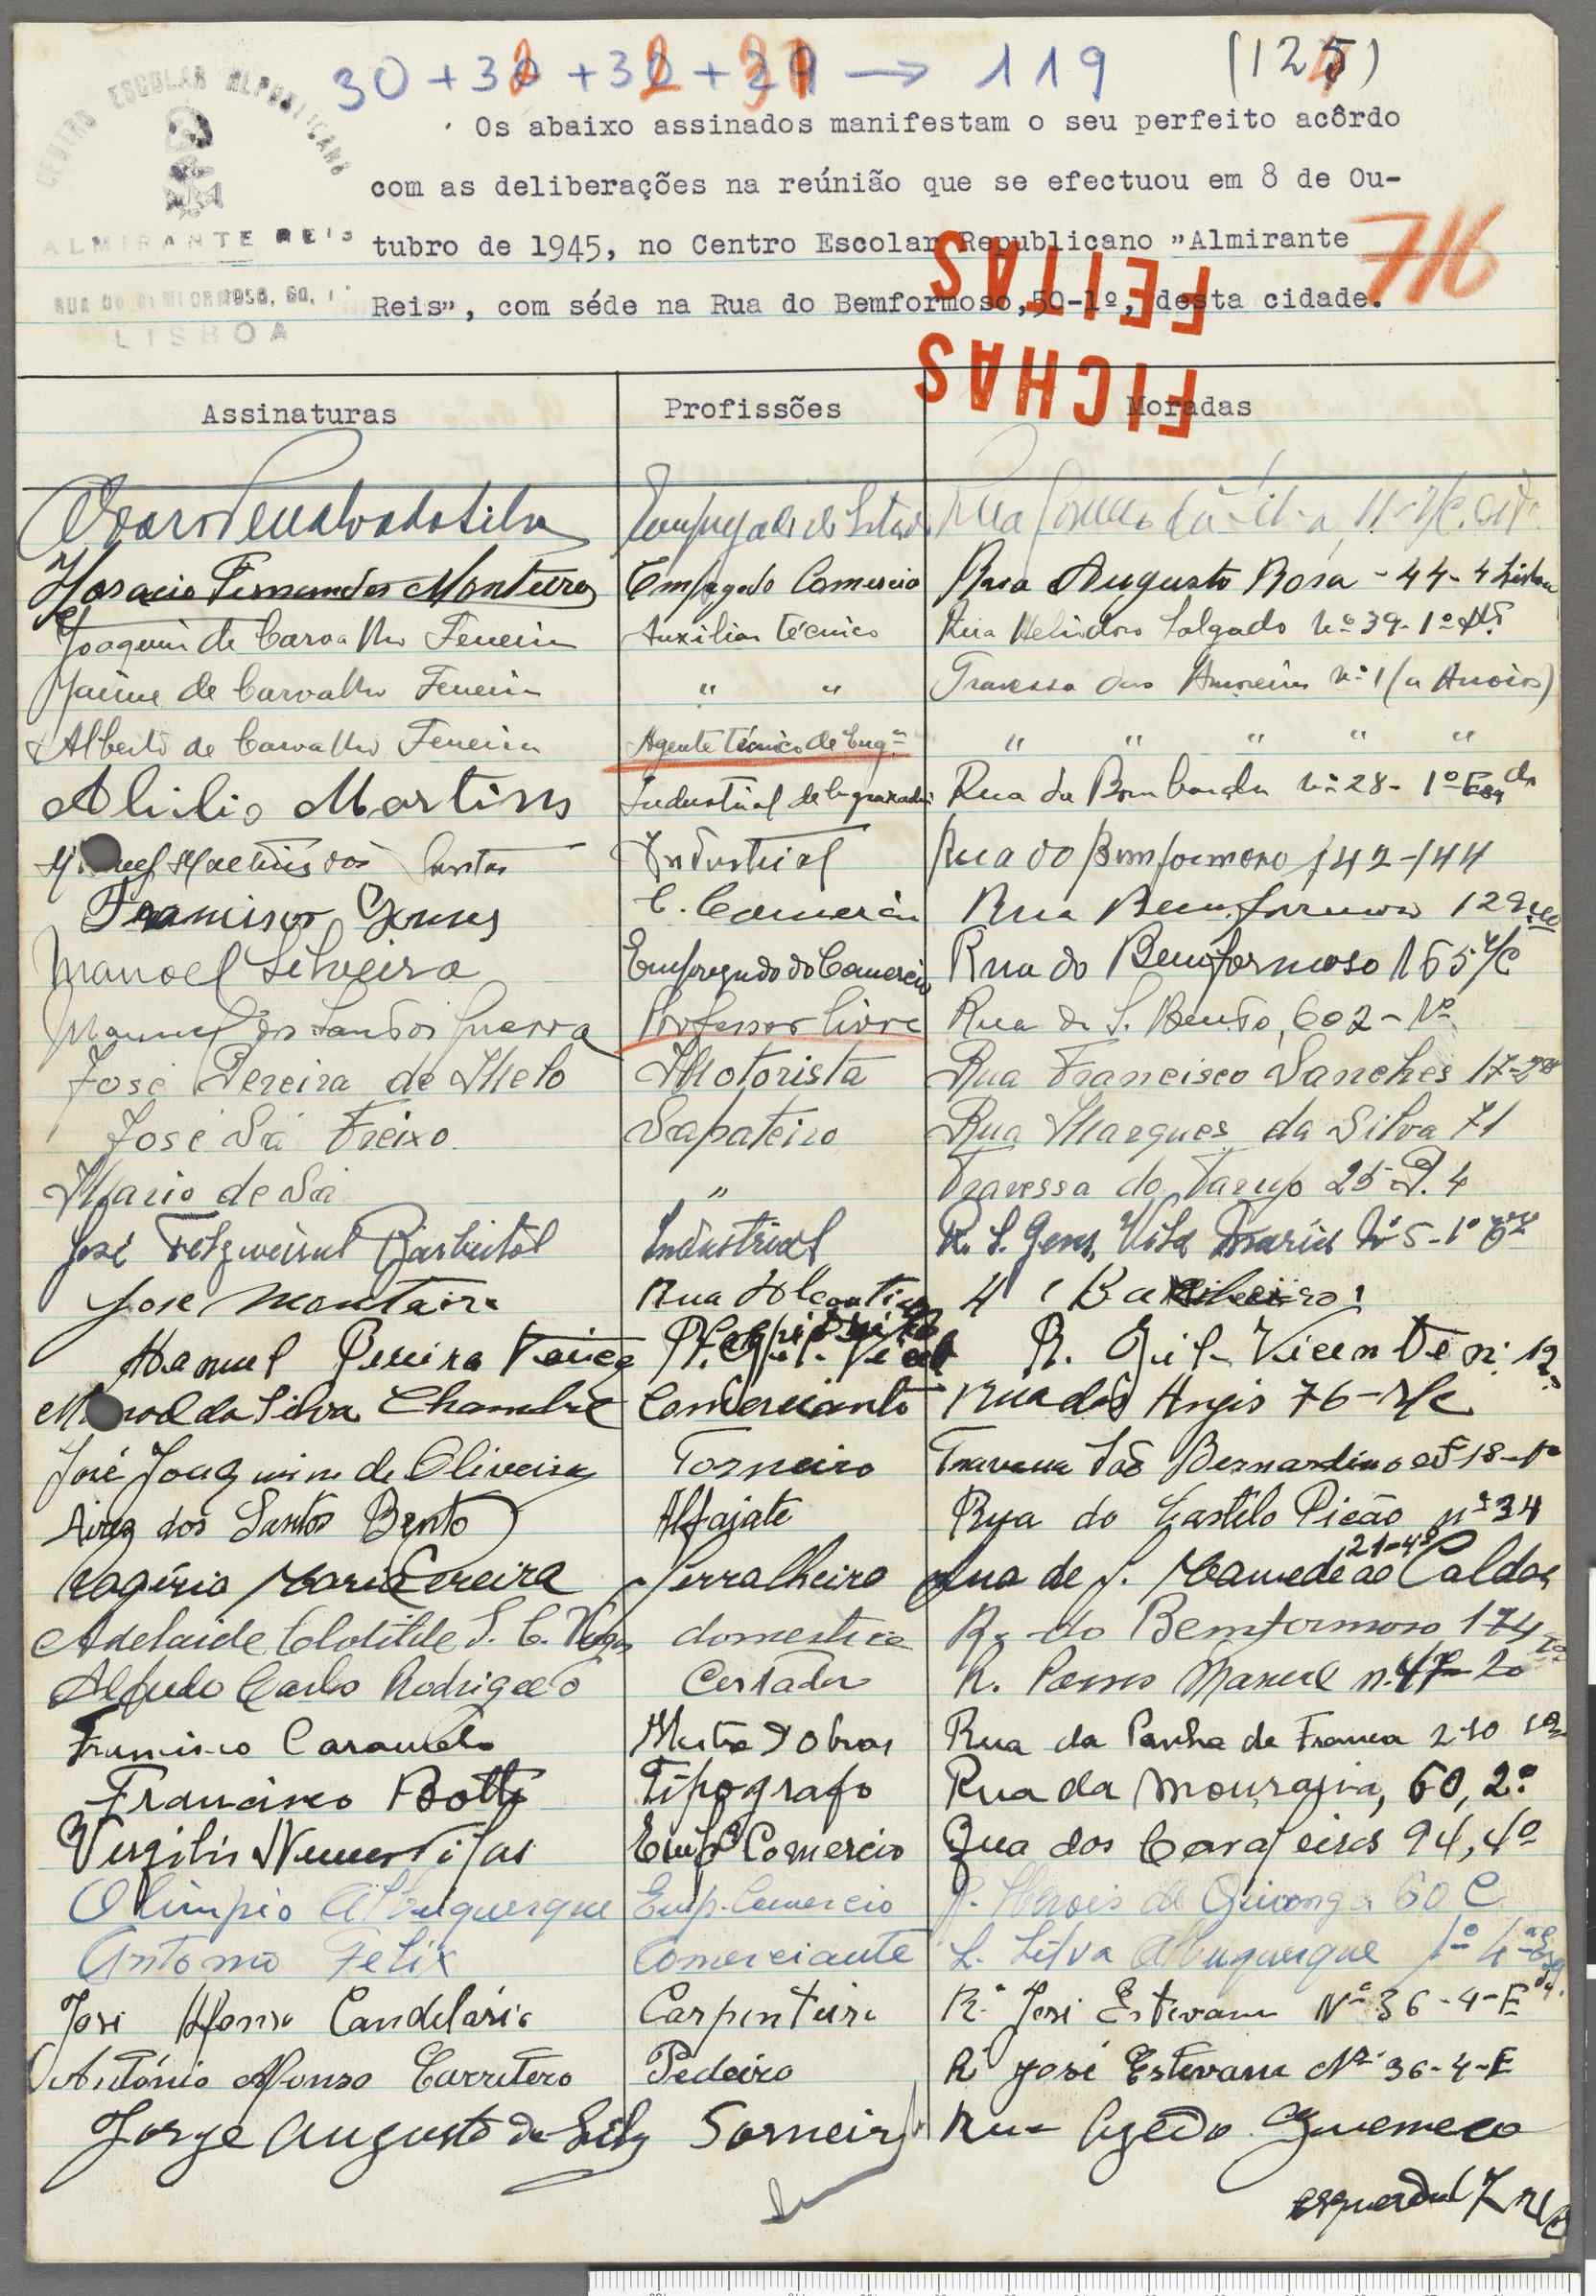 30 + 32 + 32 + 31 → 119 (125)
CENTRO ESCOLAR REPUBLICANO
ALMIRANTE REIS
LISBOA
Os abaixo assinados manifestam o seu perfeito acôrdo
com as deliberações na reúnião que se efectuou em 8 de Ou-
tubro de 1945, no Centro Escolar Republicano "Almirante
Reis", com séde na Rua do Bemformoso,50-1º, desta cidade.
716
FICHAS
FEITAS
Assinaturas Profissões Moradas
da Silva Empregado do Estado Rua Gomes da Silva, 11-r/c. dtº
Horacio Fernandes Monteiro Empregado Comercio Rua Augusto Rosa - 44-4 Lisboa
Joaquim de Carvalho Ferreira Auxiliar técnico Rua Heliodoro Salgado Nº 39-1º
Jaime de Carvalho Ferreira " " Travessa das Amoreiras nº 1 (a Arroios)
Alberto de Carvalho Ferreira Agente técnico de Engª " " " " "
Abilio Martins Industrial de Rua da Bombarda nº 28-1º Esqda
Martins dos Santos Industrial Rua do Bemformoso 142-144
Francisco Gomes E. Comercio Rua Bemformoso 129
Manoel Silveira Empregado do Comercio Rua do Bemformoso 165 r/c
Manuel dos Santos Guerra Professor livre Rua de S. Bento, 602-1º
José Pereira de Melo Motorista Rua Francisco Sanches 17-2º
José Sá Freixo Sapateiro Rua Marques da Silva 71
Mario de Sá " Travessa do Tarujo 25-P. 4
José Industrial R. S. Gens, Vila Maria Nº 5-1º
José Monteiro Rua 4
Manuel Pereira R. Gil Vicente nº 12
da Silva Comerciante Rua dos Anjos 76-r/c
José Joaquim de Oliveira Torneiro Travessa São Bernardino 18-1º
Aires dos Santos Bento Alfaiate Rua do Castelo Picão nº 34
Rogério Maria Pereira Serralheiro Rua de S. Mamede ao Caldas 21-4º
Adelaide Clotilde S. C. domestica R. do Bemformoso 174
Alfredo Carlos Rodrigues Cortador R. Passos Manuel n. 47-2º
Francisco Caramelo Mestre d'Obras Rua da Penha de França 210
Francisco Botto Tipografo Rua da Mouraria, 60, 2º
Virgilio Nunes Empº Comercio Rua dos Cavaleiros 94, 4º
Olimpio Albuquerque Emp. Comercio R. Herois de Quionga 60 C
Antonio Felix Comerciante L. Silva Albuquerque 1º 4º
José Afonso Candelária Carpinteiro R. José Estevam Nº 36-4-E
António Afonso Carretero Pedeiro R. José Estevam Nº 36-4-E
Jorge Augusto da Silva Torneiro Rua Azedo Gneneco
esquerdo